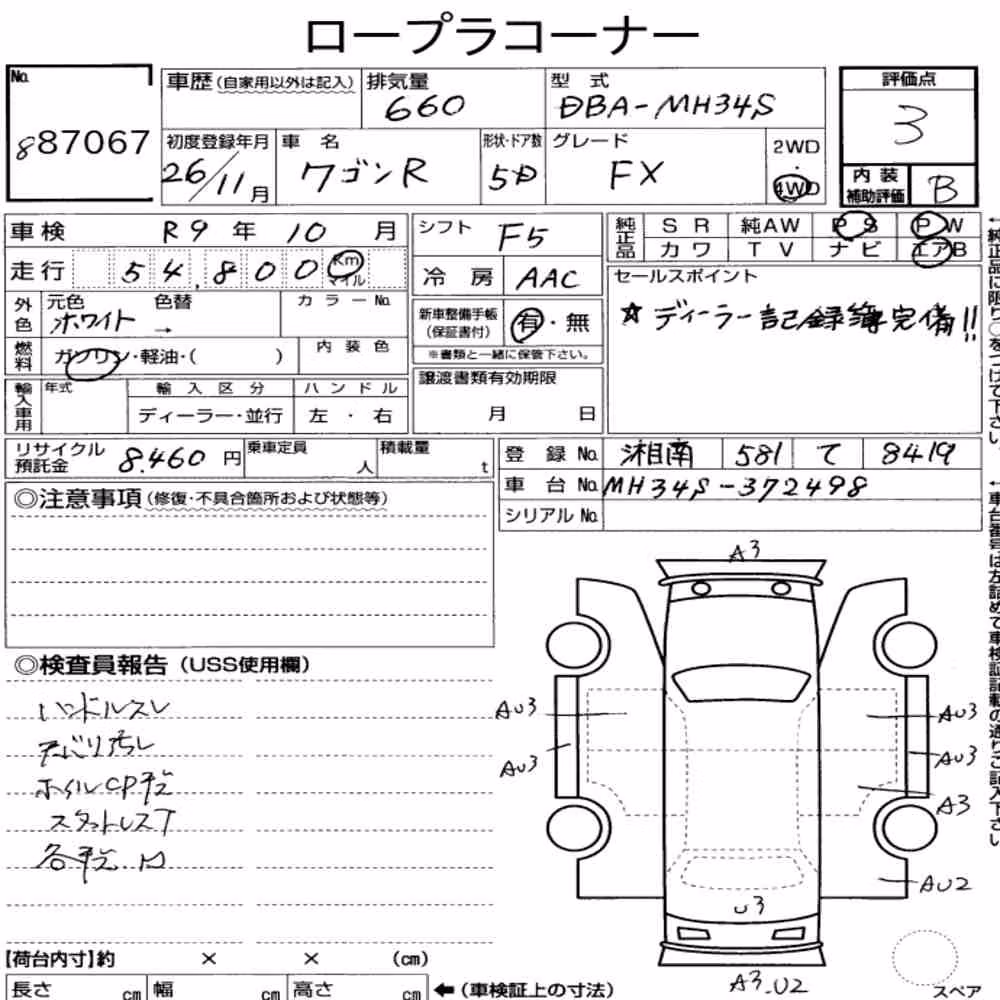 ロープラコーナー
No. 887067
車歴(自家用以外は記入) 排気量 660 型式 DBA-MH34S 評価点 3
初度登録年月 26/11月 車名 ワゴンR 形状・ドア数 5D グレード FX 2WD・4WD 内装補助評価 B
車検 R9年 10月 シフト F5 純正品 SR 純AW PS PW
カワ TV ナビ エアB
走行 54,800 Km マイル 冷房 AAC セールスポイント
☆ディーラー記録簿完備!!
外色 元色 ホワイト 色替 → カラーNo. 新車整備手帳(保証書付) 有・無
※書類と一緒に保管下さい。
燃料 ガソリン・軽油・( ) 内装色
譲渡書類有効期限
月 日
輸入車用 年式 輸入区分 ハンドル
ディーラー・並行 左・右
←純正品に限り○をつけて下さい。
リサイクル預託金 8.460円 乗車定員 人 積載量 t
登録No. 湘南 581 て 8419
車台No. MH34S-372498
シリアルNo.
←車台番号は左詰めで車検証記載の通りご記入下さい
◎注意事項(修復・不具合箇所および状態等)
◎検査員報告(USS使用欄)
ハンドルスレ
天バリ汚レ
ホイルCPキズ
スタットレスT
A3
AU3
AU3
AU3
AU3
A3
AU2
U3
A3.U2
スペア
【荷台内寸】約 × × (cm)
長さ cm 幅 cm 高さ cm ←(車検証上の寸法)